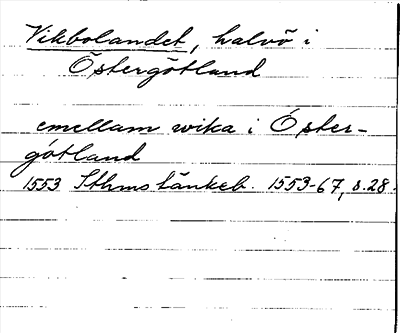 Vikbolandet, halvö i
Östergötland
emellam wika i Öster-
götland
1553 Sthms tänkeb. 1553-67, s. 28.